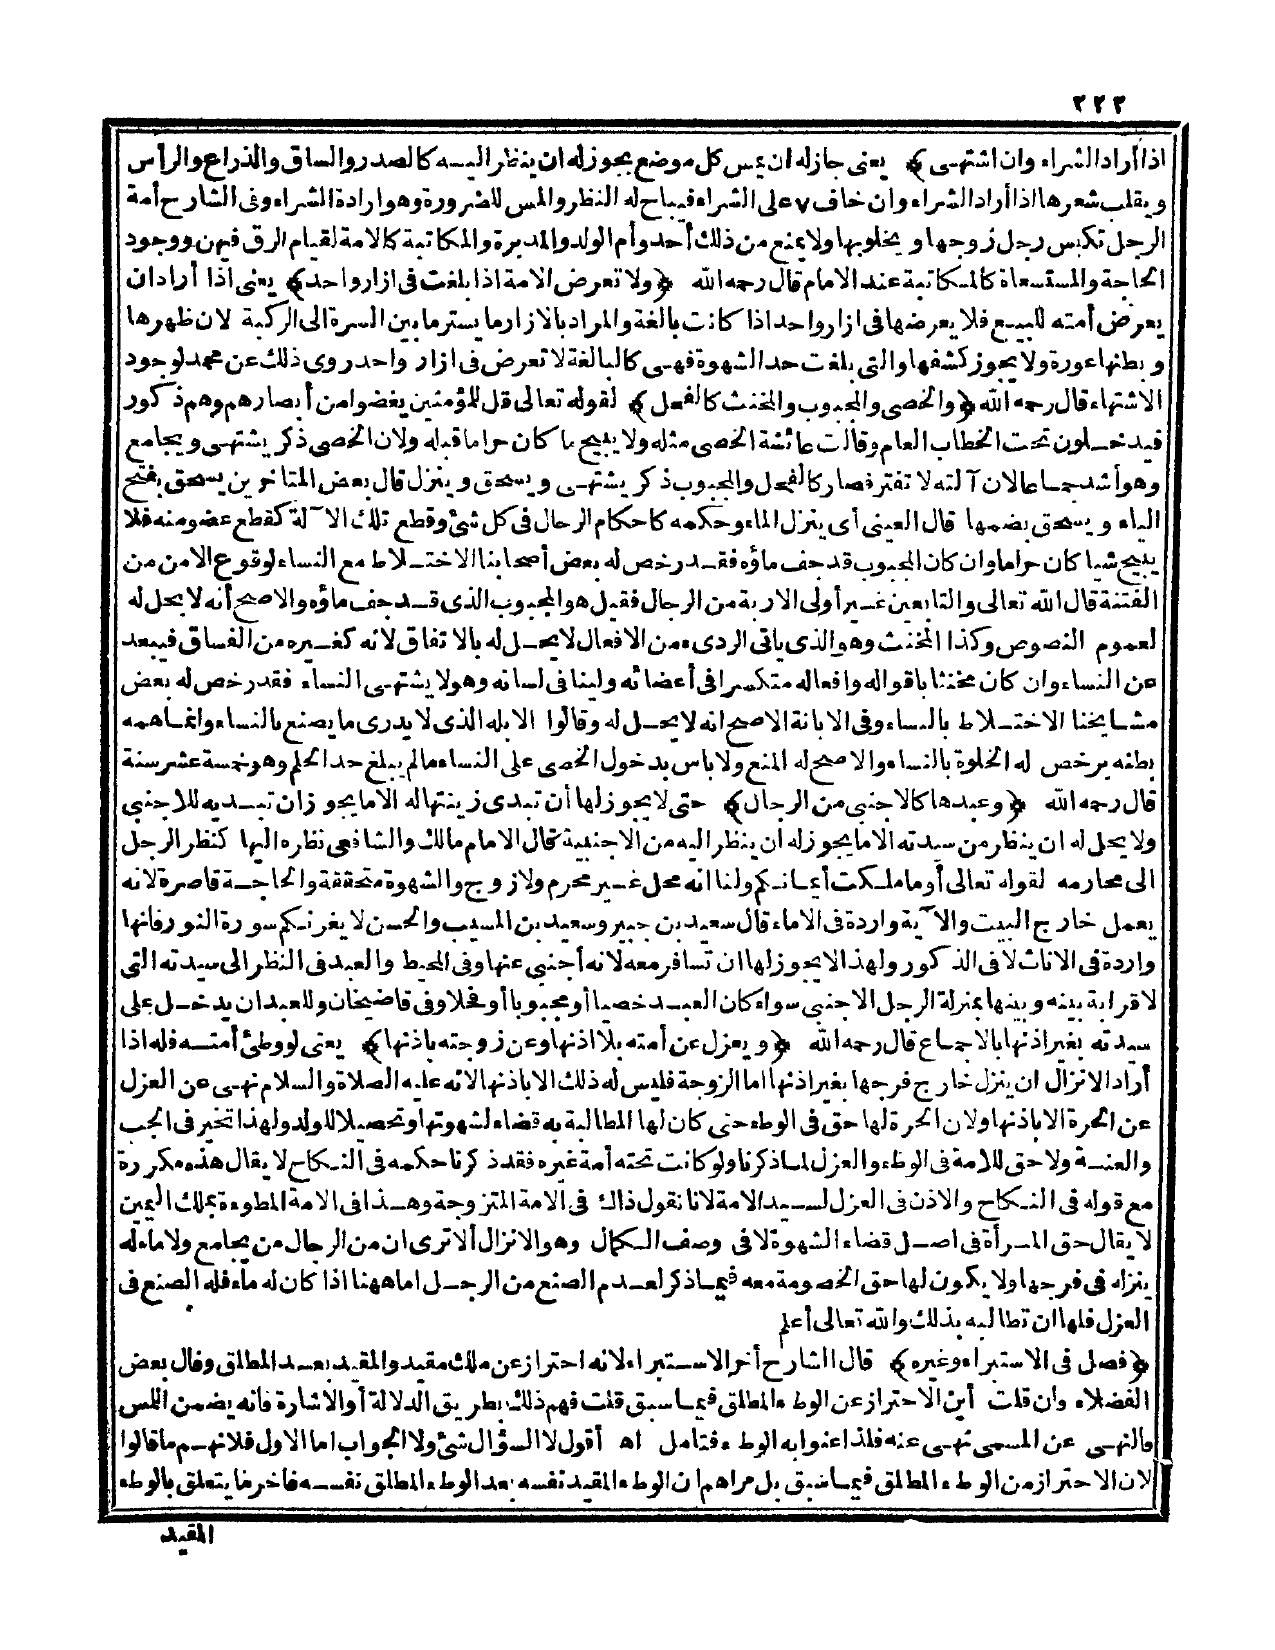 ٢٢٢
اذا أراد الشراء وان اشتهى﴾ يعنى جاز له ان يمس كل موضع يجوز له ان ينظر اليه كالصدر والساق والذراع والرأس
ويقلب شعرها اذا أراد الشراء وان خاف ٧ على الشراء فيباح له النظر والمس للضرورة وهو ارادة الشراء وفى الشارح أمة
الرجل تكبس رجل زوجها ويخلو بها ولا يمنع من ذلك أحد وأم الولد والمدبرة والمكاتبة كالامة لقيام الرق فيهن ووجود
الحاجة والمستسعاة كالمكاتبة عند الامام قال رحمه الله ﴿ولا تعرض الامة اذا بلغت فى ازار واحد﴾ يعنى اذا أراد ان
يعرض أمته للبيع فلا يعرضها فى ازار واحد اذا كانت بالغة والمراد بالازار ما يستر ما بين السرة الى الركبة لان ظهرها
وبطنها عورة ولا يجوز كشفها والتى بلغت حد الشهوة فهى كالبالغة لا تعرض فى ازار واحد روى ذلك عن محمد لوجود
الاشتهاء قال رحمه الله ﴿والخصى والمجبوب والمخنث كالفحل﴾ لقوله تعالى قل للمؤمنين يغضوا من أبصارهم وهم ذكور
فيدخلون تحت الخطاب العام وقالت عائشة الخصى مثله ولا يبيح ما كان حراما قبله ولان الخصى ذكر يشتهى ويجامع
وهو أشد جماعا لان آلته لا تفتر فصار كالفحل والمجبوب ذكر يشتهى ويسحق وينزل قال بعض المتاخرين يسحق بفتح
الياء ويسحق بضمها قال العينى أى ينزل الماء وحكمه كاحكام الرجال فى كل شئ وقطع تلك الآلة كقطع عضو منه فلا
يبيح شيا كان حراما وان كان المجبوب قد جف ماؤه فقد رخص له بعض أصحابنا الاختلاط مع النساء لوقوع الامن من
الفتنة قال الله تعالى والتابعين غير أولى الاربة من الرجال فقيل هو المجبوب الذى قد جف ماؤه والاصح أنه لا يحل له
لعموم النصوص وكذا المخنث وهو الذى ياتى الردىء من الافعال لا يحل له بالاتفاق لانه كغيره من الفساق فيبعد
عن النساء وان كان مخنثا باقواله وافعاله متكسرا فى أعضائه ولينا فى لسانه وهو لا يشتهى النساء فقد رخص له بعض
مشايخنا الاختلاط بالنساء وفى الابانة الاصح انه لا يحل له وقالوا الابله الذى لا يدرى ما يصنع بالنساء وانما همه
بطنه يرخص له الخلوة بالنساء والاصح له المنع ولا باس بدخول الخصى على النساء ما لم يبلغ حد الحلم وهو خمسة عشر سنة
قال رحمه الله ﴿وعبدها كالاجنبى من الرجال﴾ حتى لا يجوز لها أن تبدى زينتها له الا ما يجوز ان تبديه للاجنبى
ولا يحل له ان ينظر من سيدته الا ما يجوز له ان ينظر اليه من الاجنبية كما قال الامام مالك والشافعى نظره اليها كنظر الرجل
الى محارمه لقوله تعالى أو ما ملكت أيمانكم ولنا انه محل غير محرم ولا زوج والشهوة متحققة والحاجة قاصرة لانه
يعمل خارج البيت والآية واردة فى الاماء قال سعيد بن جبير وسعيد بن المسيب والحسن لا يغرنكم سورة النور فانها
واردة فى الاناث لا فى الذكور ولهذا لا يجوز لها ان تسافر معه لانه أجنبى عنها وفى المحيط والعبد فى النظر الى سيدته التى
لا قرابة بينه وبينها بمنزلة الرجل الاجنبى سواء كان العبد خصيا أو مجبوبا أو فحلا وفى قاضيخان وللعبد ان يدخل على
سيدته بغير اذنها بالاجماع قال رحمه الله ﴿ويعزل عن أمته بلا اذنها وعن زوجته باذنها﴾ يعنى لو وطئ أمته فله اذا
أراد الانزال ان ينزل خارج فرجها بغير اذنها اما الزوجة فليس له ذلك الا باذنها لانه عليه الصلاة والسلام نهى عن العزل
عن الحرة الا باذنها ولان الحرة لها حق فى الوطء حتى كان لها المطالبة به قضاء لشهوتها وتحصيلا للولد ولهذا تخير فى الجب
والعنة ولا حق للامة فى الوطء والعزل لما ذكرنا ولو كانت تحته أمة غيره فقد ذكرنا حكمه فى النكاح لا يقال هذه مكررة
مع قوله فى النكاح والاذن فى العزل لسيد الامة لانا نقول ذاك فى الامة المتزوجة وهذا فى الامة المطوءة بملك اليمين
لا يقال حق المرأة فى اصل قضاء الشهوة لا فى وصف الكمال وهو الانزال ألا ترى ان من الرجال من يجامع ولا ماء له
ينزله فى فرجها ولا يكون لها حق الخصومة معه فيما ذكر لعدم الصنع من الرجل اما ههنا اذا كان له ماء فله الصنع فى
العزل فلها ان تطالبه بذلك والله تعالى أعلم
﴿فصل فى الاستبراء وغيره﴾ قال الشارح أخر الاستبراء لانه احتراز عن ملك مقيد والمقيد بعد المطلق وقال بعض
الفضلاء وان قلت أين الاحتراز عن الوطء المطلق فيما سبق قلت فهم ذلك بطريق الدلالة أو الاشارة فانه يضمن اللس
فالنهى عن المسمى نهى عنه فلذا عنوا به الوطء فتامل اه أقول لا السؤال شئ ولا الجواب اما الاول فلانهم ما قالوا
لان الاحتراز من الوطء المطلق فيما سبق بل مراهم ان الوطء المقيد نفسه بعد الوطء المطلق نفسه فاخر ما يتعلق بالوطء
المقيد